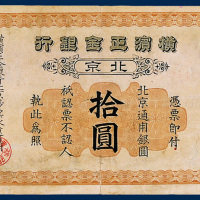 橫濱正金銀行
北京
憑票即付
北京通用銀圓
拾圓
祇認票不認人
執此為照